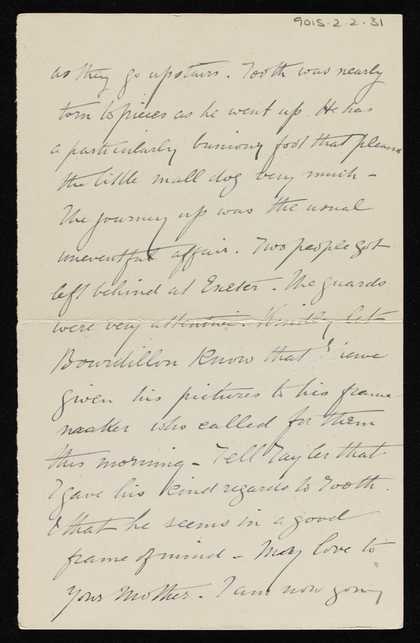 9015-2-2-31
as they go upstairs. Tooth was nearly
torn to pieces as he went up. He has
a particularly buniony foot that pleases
the little small dog very much -
The journey up was the usual
uneventful affair. Two people got
left behind at Exeter. The guards
were very attentive. Kindly let
Bourdillon know that I have
given his pictures to his frame
maker who called for them
this morning - Tell Tayler that
I gave his kind regards to Tooth.
& that he seems in a good
frame of mind - My love to
your Mother. I am now going